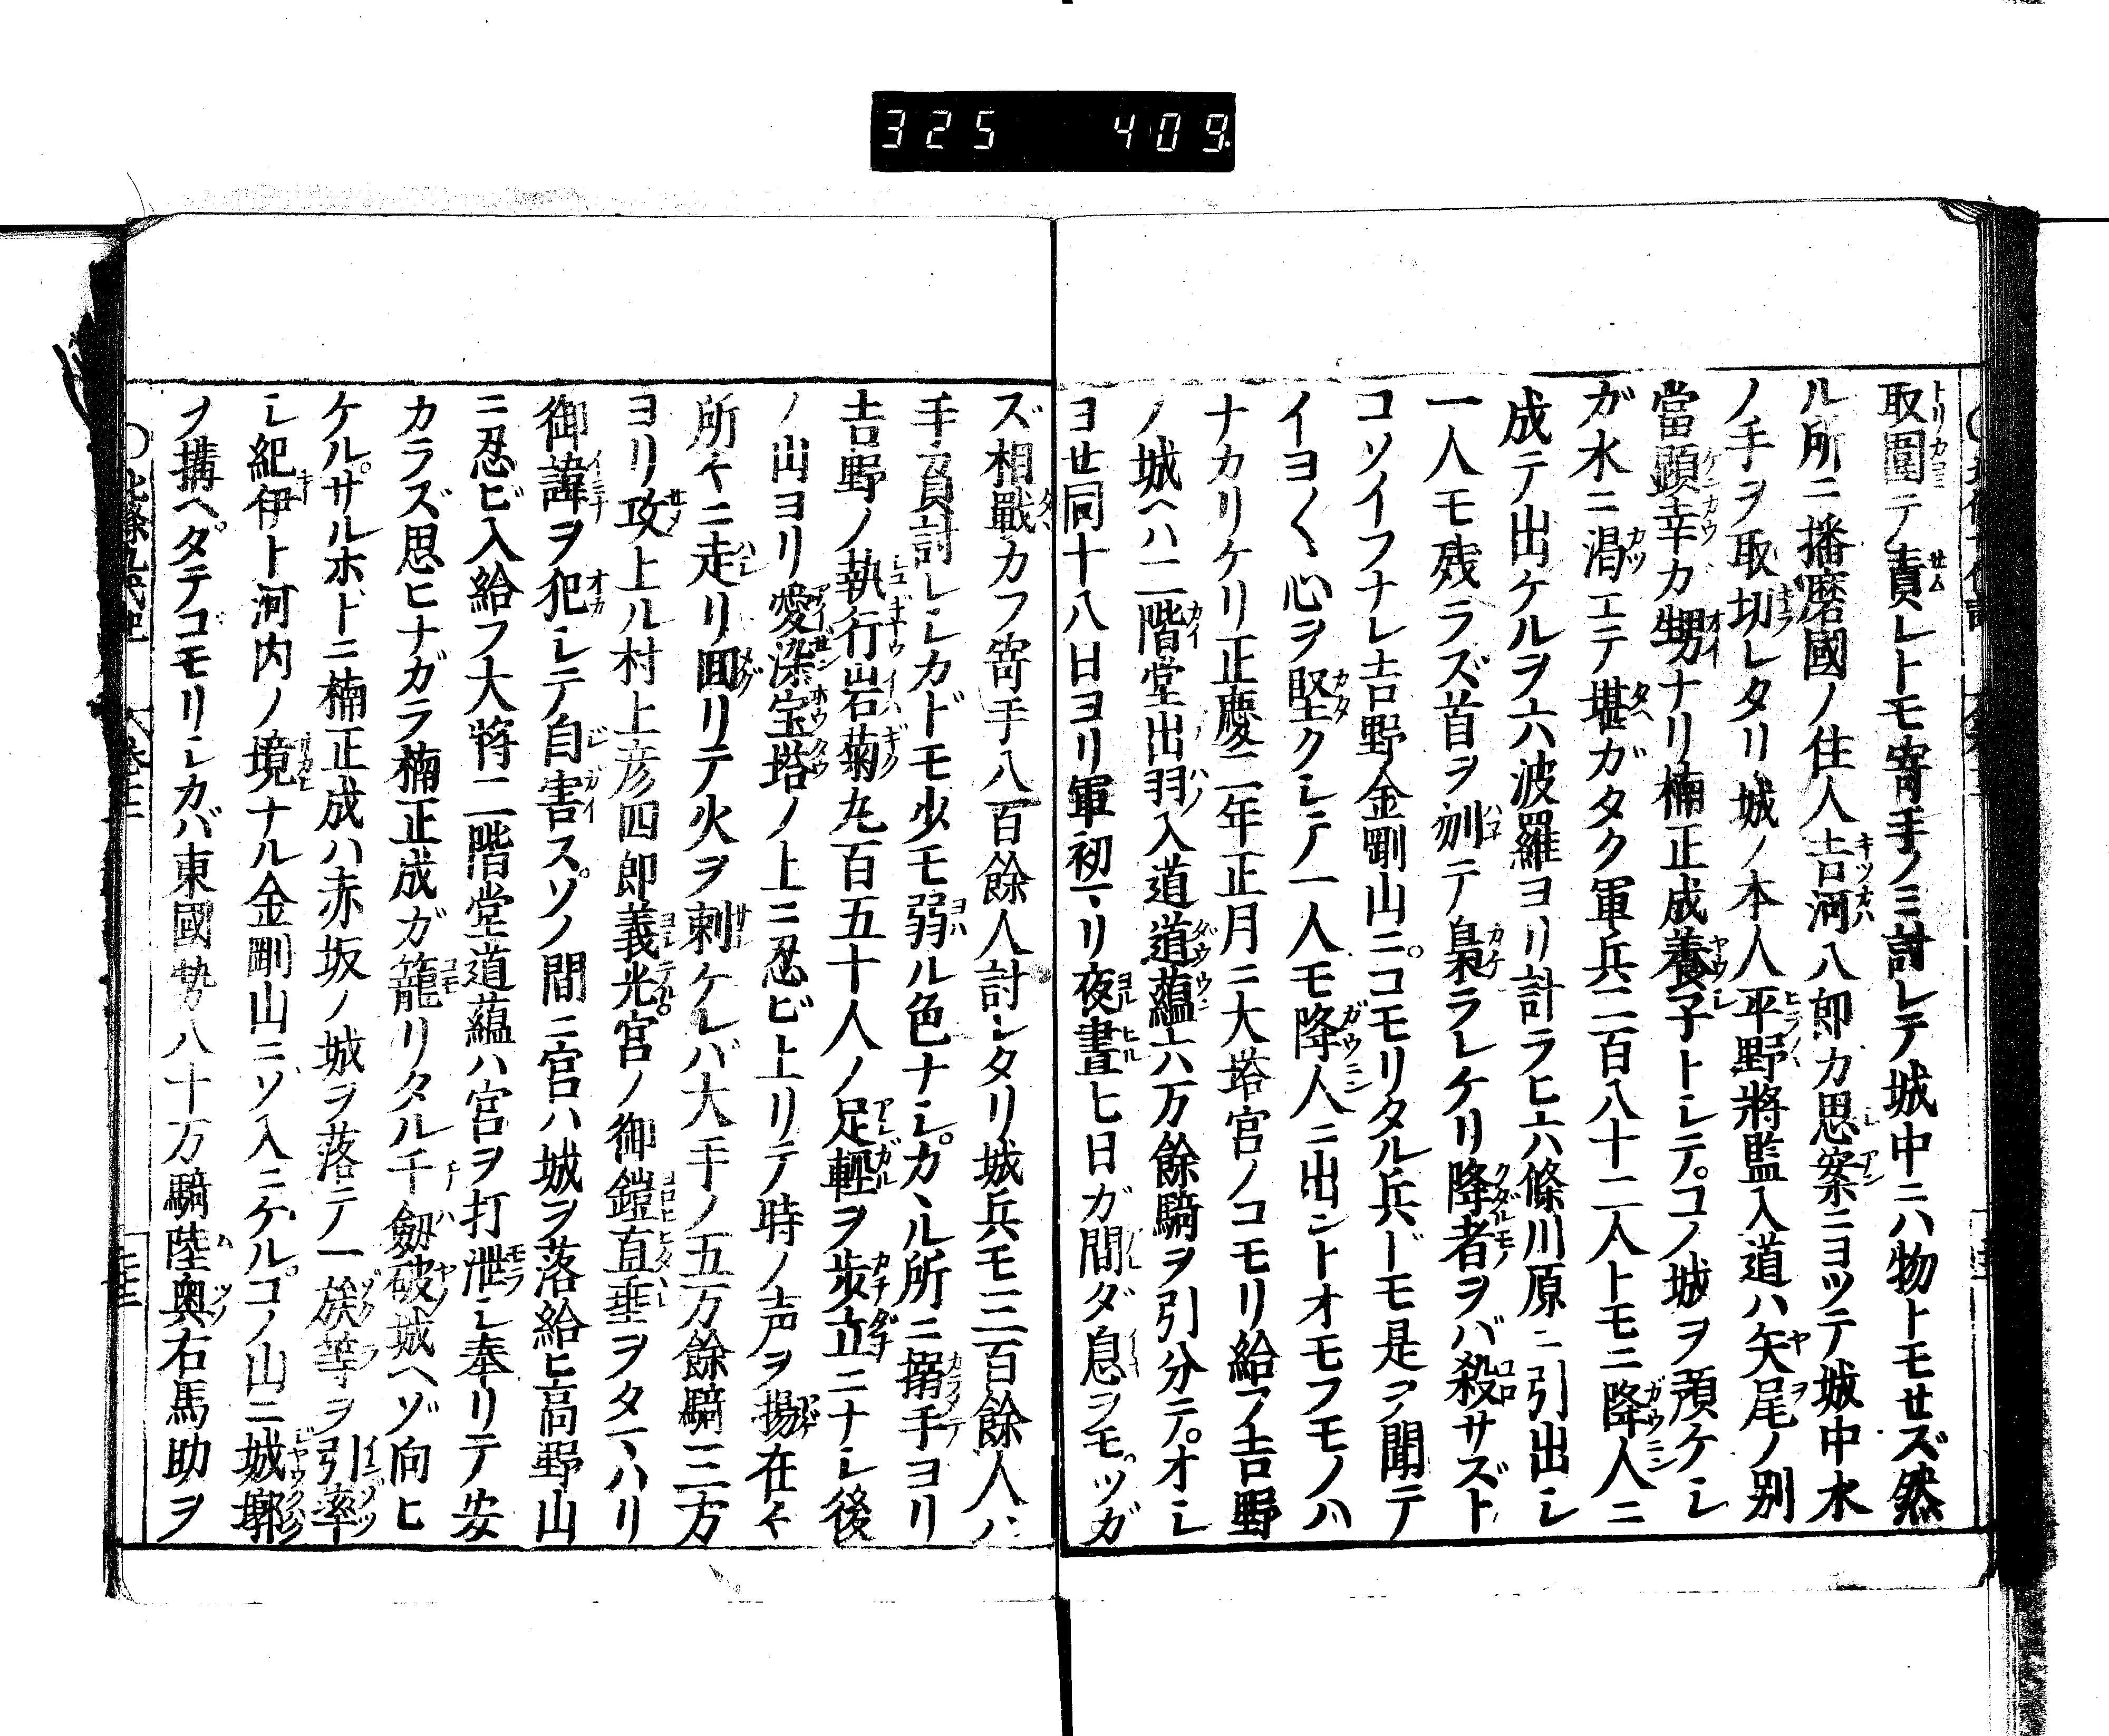 325 409
取圍テ責レトモ寄手ノミ討レテ城中ニハ物トモせズ然
ル所ニ播磨國ノ住人吉河八郎カ思案ニヨツテ城中水
ノ手ヲ取切レタリ城ノ本人平野將監入道ハ矢尾ノ別
當顕幸カ甥ナリ楠正成養子トシテコノ城ヲ預ケシ
ガ水ニ渇エテ堪ガタク軍兵二百八十二人トモニ降人ニ
成テ出ケルヲ六波羅ヨリ計ラヒ六條川原ニ引出シ
一人モ残ラズ首ヲ刎テ梟ラレケリ降者ヲバ殺サズト
コソイフナレ吉野金剛山ニコモリタル兵ドモ是ヲ聞テ
イヨ〱心ヲ堅クシテ一人モ降人ニ出ントオモフモノハ
ナカリケリ正慶二年正月ニ大塔宮ノコモリ給フ吉野
ノ城ヘハ二階堂出羽入道道蘊六万餘騎ヲ引分テオシ
ヨせ同十八日ヨリ軍初マリ夜晝七日ガ間ダ息ヲモツガ
ズ相戰カフ寄手八百餘人討レタリ城兵モ三百餘人ハ
手負討レシカドモ少モ弱ル色ナシカヽル所ニ搦手ヨリ
吉野ノ執行岩菊丸百五十人ノ足軽ヲ歩立ニナシ後
ノ山ヨリ愛染宝塔ノ上ニ忍ビ上リテ時ノ声ヲ揚在々
所々ニ走リ囬リテ火ヲ刺ケレバ大手ノ五万餘騎三方
ヨリ攻上ル村上彦四郎義光宮ノ御鎧直垂ヲタマハリ
御諱ヲ犯シテ自害スソノ間ニ宮ハ城ヲ落給ヒ高野山
ニ忍ビ入給フ大將二階堂道蘊ハ宮ヲ打泄シ奉リテ安
カラズ思ヒナガラ楠正成ガ籠リタル千劔破城ヘゾ向ヒ
ケルサルホドニ楠正成ハ赤坂ノ城ヲ落テ一族等ヲ引率
シ紀伊ト河内ノ境ナル金剛山ニゾ入ニケルコノ山ニ城郭
ヲ搆ヘタテコモリシカバ東國勢八十万騎陸奥右馬助ヲ
〇北條九代記